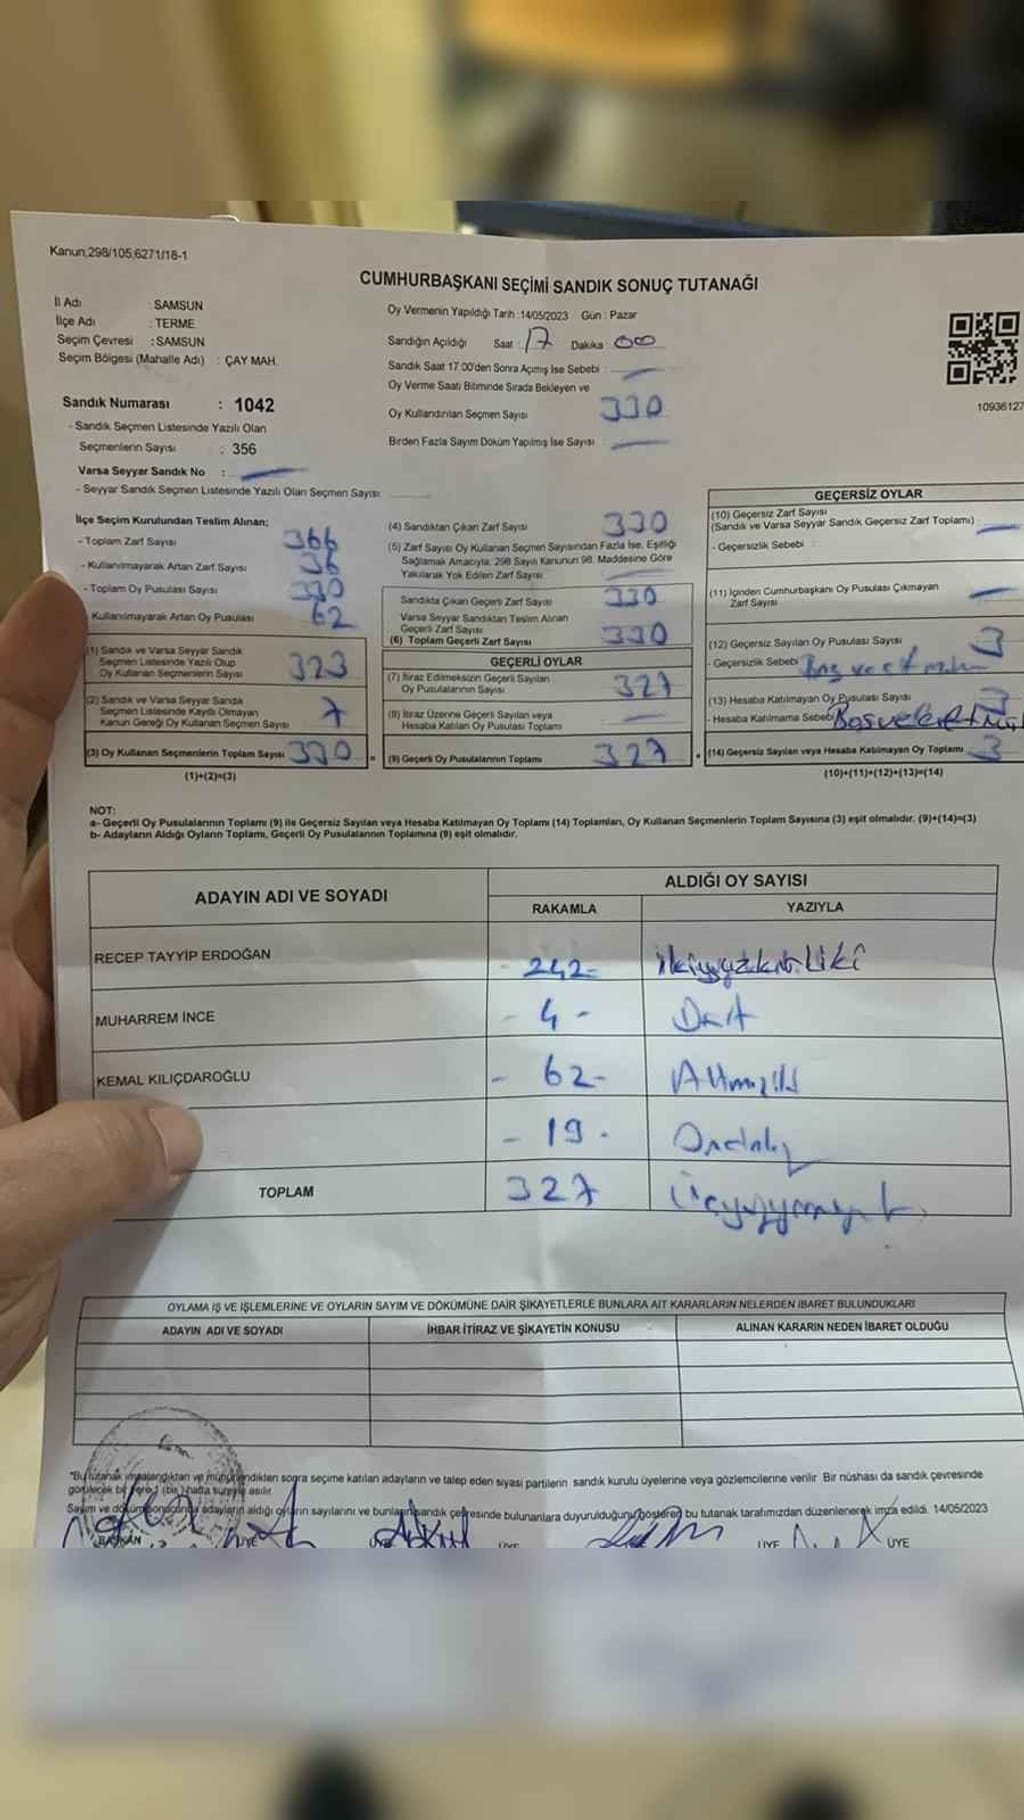 Kanun;298/105;6271/18-1
CUMHURBAŞKANI SEÇİMİ SANDIK SONUÇ TUTANAĞI
İl Adı : SAMSUN
İlçe Adı : TERME
Seçim Çevresi : SAMSUN
Seçim Bölgesi (Mahalle Adı) : ÇAY MAH.
Sandık Numarası : 1042
- Sandık Seçmen Listesinde Yazılı Olan
Seçmenlerin Sayısı : 356
Varsa Seyyar Sandık No :
- Seyyar Sandık Seçmen Listesinde Yazılı Olan Seçmen Sayısı
Oy Vermenin Yapıldığı Tarih :14/05/2023 Gün : Pazar
Sandığın Açıldığı Saat : 17 Dakika : 00
Sandık Saat 17:00'den Sonra Açmış İse Sebebi :
Oy Verme Saati Bitiminde Sırada Bekleyen ve
Oy Kullandırılan Seçmen Sayısı 330
Birden Fazla Sayım Döküm Yapılmış İse Sayısı :
10936127
İlçe Seçim Kurulundan Teslim Alınan;
- Toplam Zarf Sayısı 366
- Kullanılmayarak Artan Zarf Sayısı 36
- Toplam Oy Pusulası Sayısı 330
Kullanılmayarak Artan Oy Pusulası 62
(1) Sandık ve Varsa Seyyar Sandık
Seçmen Listesinde Yazılı Olup
Oy Kullanan Seçmenlerin Sayısı 323
(2) Sandık ve Varsa Seyyar Sandık
Seçmen Listesinde Kaydı Olmayan
Kanun Gereği Oy Kullanan Seçmen Sayısı 7
(3) Oy Kullanan Seçmenlerin Toplam Sayısı 330
(1)+(2)=(3)
(4) Sandıktan Çıkan Zarf Sayısı 330
(5) Zarf Sayısı Oy Kullanan Seçmen Sayısından Fazla İse, Eşitliği
Sağlamak Amacıyla; 298 Sayılı Kanunun 98. Maddesine Göre
Yakılarak Yok Edilen Zarf Sayısı
Sandıkta Çıkan Geçerli Zarf Sayısı 330
Varsa Seyyar Sandıktan Teslim Alınan
Geçerli Zarf Sayısı
(6) Toplam Geçerli Zarf Sayısı 330
GEÇERLİ OYLAR
(7) İtiraz Edilmeksizin Geçerli Sayılan
Oy Pusulalarının Sayısı 327
(8) İtiraz Üzerine Geçerli Sayılan veya
Hesaba Katılan Oy Pusulası Toplamı
= (9) Geçerli Oy Pusulalarının Toplamı 327
GEÇERSİZ OYLAR
(10) Geçersiz Zarf Sayısı
(Sandık ve Varsa Seyyar Sandık Geçersiz Zarf Toplamı)
- Geçersizlik Sebebi :
(11) İçinden Cumhurbaşkanı Oy Pusulası Çıkmayan
Zarf Sayısı
(12) Geçersiz Sayılan Oy Pusulası Sayısı 3
- Geçersizlik Sebebi
(13) Hesaba Katılmayan Oy Pusulası Sayısı 3
- Hesaba Katılmama Sebebi
+ (14) Geçersiz Sayılan veya Hesaba Katılmayan Oy Toplamı 3
(10)+(11)+(12)+(13)=(14)
NOT:
a- Geçerli Oy Pusulalarının Toplamı (9) ile Geçersiz Sayılan veya Hesaba Katılmayan Oy Toplamı (14) Toplamları, Oy Kullanan Seçmenlerin Toplam Sayısına (3) eşit olmalıdır. (9)+(14)=(3)
b- Adayların Aldığı Oyların Toplamı, Geçerli Oy Pusulalarının Toplamına (9) eşit olmalıdır.
ADAYIN ADI VE SOYADI ALDIĞI OY SAYISI
RAKAMLA YAZIYLA
RECEP TAYYİP ERDOĞAN - 242 - ikiyüzkırkiki
MUHARREM İNCE - 4 - Dört
KEMAL KILIÇDAROĞLU - 62 - Altmışiki
- 19 - Ondokuz
TOPLAM 327 Üçyüzyirmiyedi
OYLAMA İŞ VE İŞLEMLERİNE VE OYLARIN SAYIM VE DÖKÜMÜNE DAİR ŞİKAYETLERLE BUNLARA AİT KARARLARIN NELERDEN İBARET BULUNDUKLARI
ADAYIN ADI VE SOYADI İHBAR İTİRAZ VE ŞİKAYETİN KONUSU ALINAN KARARIN NEDEN İBARET OLDUĞU
"Bu tutanak imzalandıktan ve mühürlendikten sonra seçime katılan adayların ve talep eden siyasi partilerin sandık kurulu üyelerine veya gözlemcilerine verilir. Bir nüshası da sandık çevresinde
görülecek bir yere 1 (bir) hafta süreyle asılır.
Sayım ve dökümü sonucunda adayların aldığı oyların sayılarını ve bunların sandık çevresinde bulunanlara duyurulduğunu gösteren bu tutanak tarafımızdan düzenlenerek imza edildi. 14/05/2023
BAŞKAN ÜYE ÜYE ÜYE ÜYE ÜYE